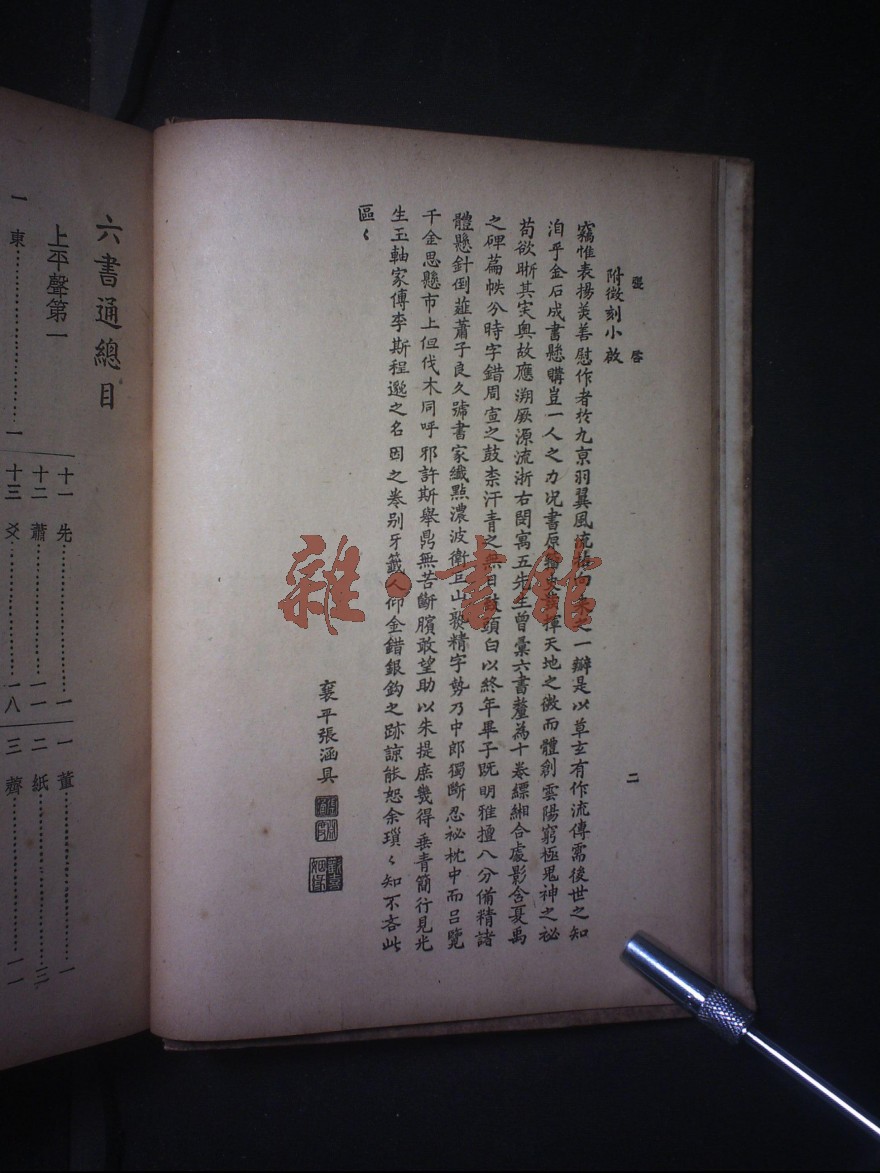 張啓
附徵刻小啟
竊惟表揚美善慰作者於九京羽翼風流一瓣是以草玄有作流傳需後世之知
洎乎金石成書懸購豈一人之力况書原揮天地之微而體創雲陽窮極鬼神之祕
苟欲晰其実奧故應溯厥源流浙右閔寓五先生曾彙六書釐為十卷縹緗合處影含夏禹
之碑萹帙分時字錯周宣之鼓柰汗青之無日頭白以終年畢子既明雅擅八分備精諸
體懸針倒薤蕭子良久號書家纖點濃波衛巨山精字勢乃中郎獨斷忍祕枕中而呂覽
千金思懸市上但伐木同呼邪許斯舉鼎無苦斷臏敢望助以朱提庶幾得垂青簡行見光
生玉軸家傳李斯程邈之名因之卷別牙籤人仰金錯銀鈎之跡諒能恕余瑣〻知不吝此
區〻
襄平張涵具
二
六書通總目
上平聲第一
一東 一
十一先 一
十二蕭 一一
十三爻 一八
一董 一
二紙 三
三薺 一一
雜·書館